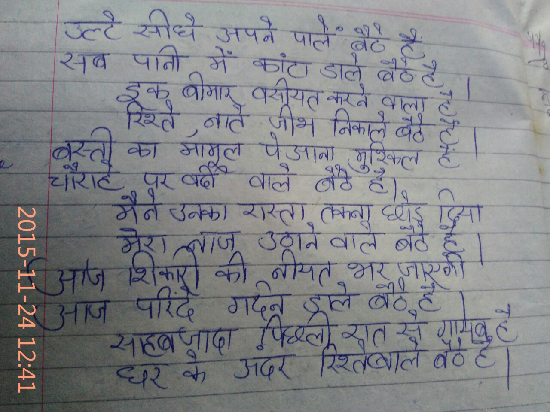 उल्टे सीधे अपने पाले बैठे है
सब पानी में कांटा डाले बैठे है ।
इक बीमार वसीयत करने वाला है
रिश्ते नाते जीभ निकाले बैठे है ।
बस्ती का मामूल पे आना मुश्किल है
चौराहे पर वर्दी वाले बैठे है ।
मैने उनका रास्ता तकना छोड़ दिया
मेरा नाज उठाने वाले बैठे है ।
आज शिकारी की नीयत भर जाएगी
आज परिंदे गर्दन डाले बैठे है ।
साहबजादा पिछली रात से गायब है
घर के अंदर रिश्तेवाले बैठे है ।
2015-11-24 12:41